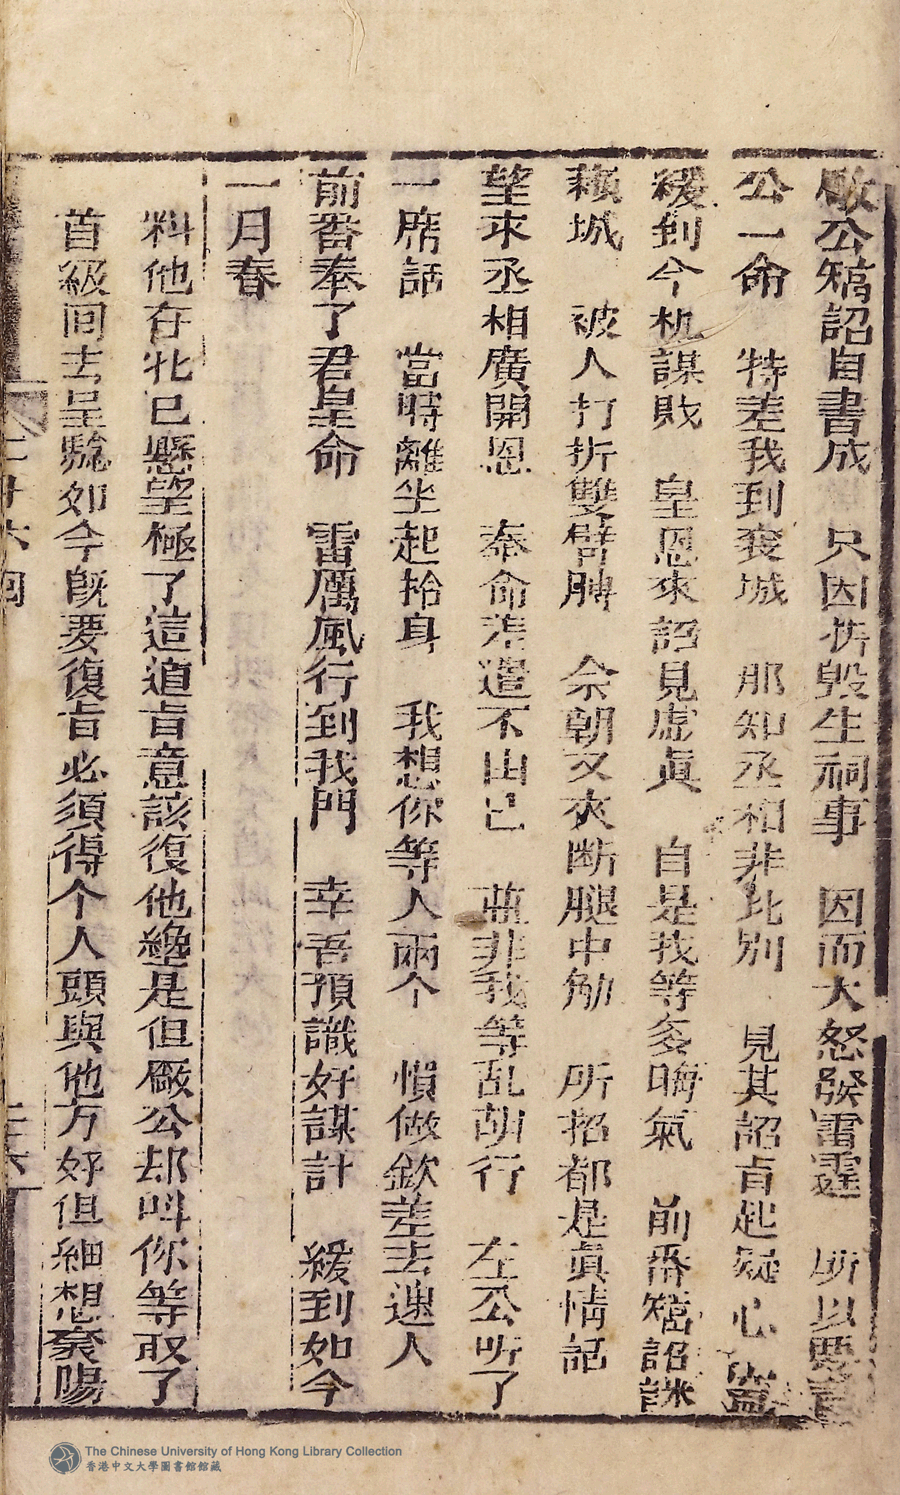 敝公矯詔自書成 只因拆毀生祠事 因而大怒發雷霆 所以要
公一命 特差我到襄城 那知丞相非比別 見其詔旨起疑心 盤
緩到今机謀敗 皇恩來詔見虛真 自是我等多晦氣 前番矯詔誅
襄城 被人打折雙臂膊 余朝又夾断腿中觔 所招都是真情話
望求丞相廣開恩 奉命差遣不由己 並非我等乱胡行 左公听了
一席話 當時離坐起抬身 我想你等人兩个 慣做欽差去逮人
前番奉了君皇命 雷厲風行到我門 幸吾預識好謀計 緩到如今
一月春
料他在北已懸望極了這道旨意該復他纔是但厰公却呌你等取了
首級回去呈驗如今既要復旨必須得个人頭與他方好但細想襄陽
The Chinese University of Hong Kong Library Collection
香港中文大學圖書館館藏